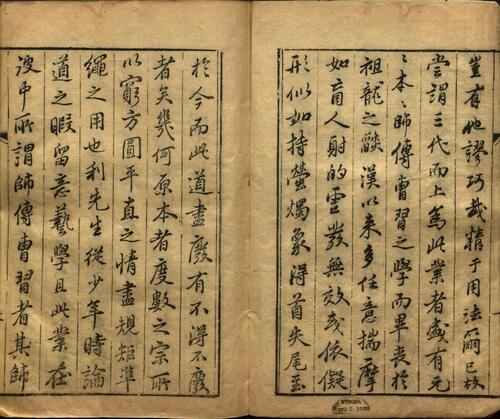 豈有他謬巧哉精于用法爾已故
嘗謂三代而上為此業者盛有元
〻本〻師傳曹習之學而畢喪於
祖龍之燄漢以來多任意揣摩
如盲人射的虛發無效或依儗
形似如持螢燭象得首失尾至
於今而此道盡廢有不得不廢
者矣幾何原本者度數之宗所
以窮方圓平直之情盡規矩準
繩之用也利先生從少年時論
道之暇留意藝學且此業在
波中所謂師傳曹習者其師